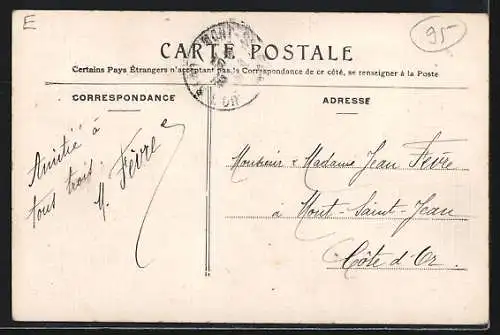 E
95-
CARTE POSTALE
Certains Pays Étrangers n'acceptant pas la Correspondance de ce côté, se renseigner à la Poste
CORRESPONDANCE
Amitié à
tous trois.
M. Fèvre
ADRESSE
Monsieur & Madame Jean Fèvre
à Mont-Saint-Jean
Côte d'Or.